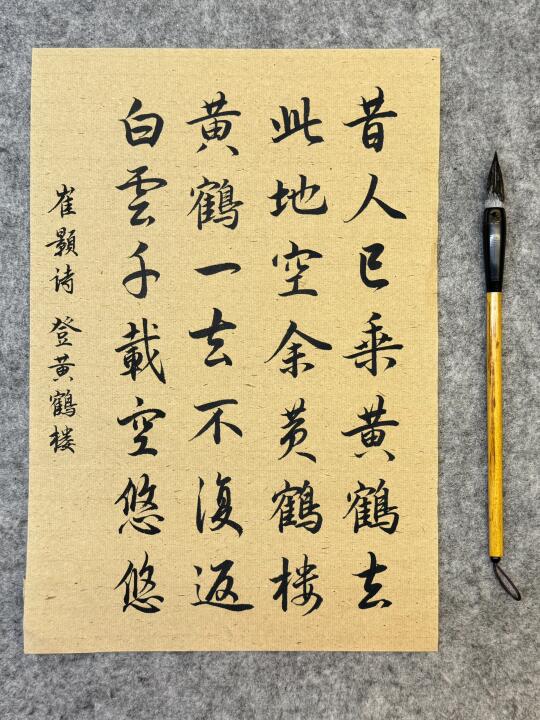 昔人已乘黄鶴去
此地空余黄鶴楼
黄鶴一去不復返
白雲千載空悠悠
崔顥诗 登黄鶴楼